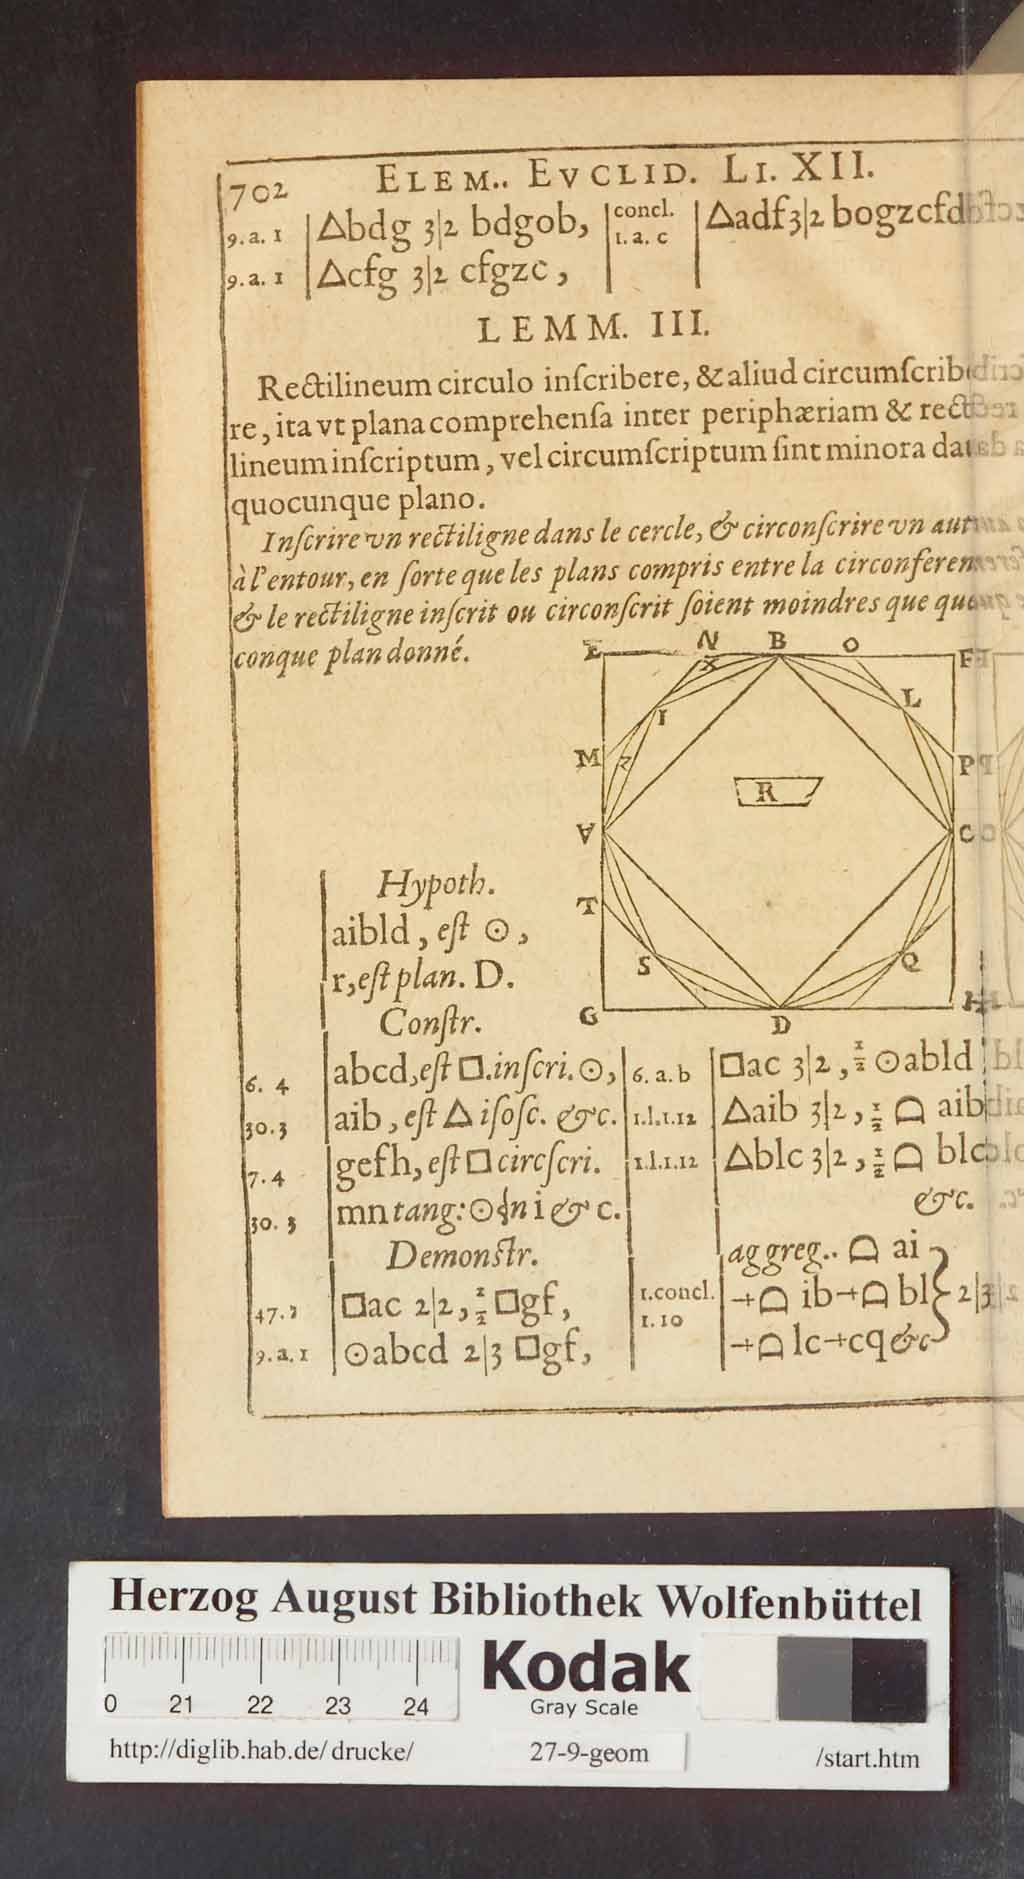 702 ELEM.. EVCLID. LI. XII.
9. a. 1 △bdg 3|2 bdgob, concl. 1. a. c △adf 3|2 bogzcfd
9. a. 1 △cfg 3|2 cfgzc,
LEMM. III.
Rectilineum circulo inſcribere, & aliud circumſcrib
re, ita vt plana comprehenſa inter periphæriam & rect
lineum inſcriptum, vel circumſcriptum ſint minora dat
quocunque plano.
Inſcrire vn rectiligne dans le cercle, & circonſcrire vn aut
à l'entour, en ſorte que les plans compris entre la circonferen
& le rectiligne inſcrit ou circonſcrit ſoient moindres que que
conque plan donné.
E N B O F
X L
I
M Z P
R
A C
T
S Q
G D H
Hypoth.
aibld, eſt ⊙,
r, eſt plan. D.
Conſtr.
6. 4 abcd, eſt □. inſcri. ⊙,
30. 3 aib, eſt △ iſoſc. &c.
7. 4 gefh, eſt □ circſcri.
30. 3 mn tang: ⊙ ʠn i & c.
Demonſtr.
47. 1 □ac 2|2, ½ □gf,
9. a. 1 ⊙abcd 2|3 □gf,
6. a. b □ac 3|2, ½ ⊙abld
1.l.1.12 △aib 3|2, ½ ⌓ aib
1.l.1.12 △blc 3|2, ½ ⌓ blc
&c.
aggreg.. ⌓ ai
1. concl. 1. 10 ⊹⌓ ib⊹⌓ bl } 2|3
⊹⌓ lc⊹cq &c
Herzog August Bibliothek Wolfenbüttel
0 21 22 23 24
Kodak
Gray Scale
http://diglib.hab.de/drucke/ 27-9-geom /start.htm